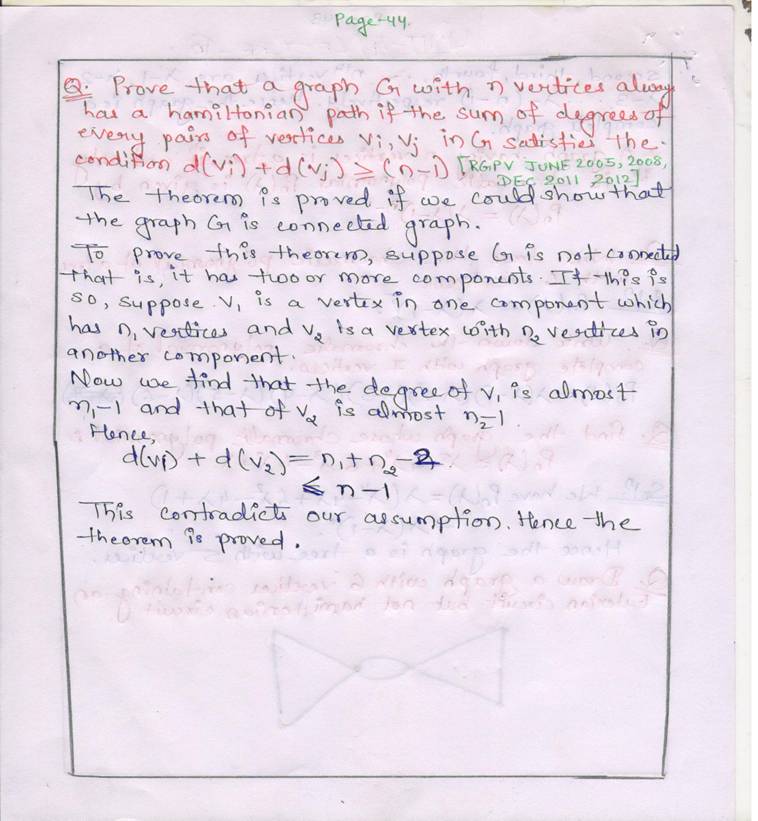 Page-44.
Q. Prove that a graph G with n vertices alway
has a hamiltonian path if the sum of degrees of
every pairs of vertices Vi, Vj in G satisfies the
condition d(Vi) + d(Vj) ≥ (n-1) [RGPV JUNE 2005, 2008,
DEC 2011, 2012]
The theorem is proved if we could show that
the graph G is connected graph.
To prove this theorem, suppose G is not connected
that is, it has two or more components. If this is
so, suppose V₁ is a vertex in one component which
has n₁ vertices and V₂ is a vertex with n₂ vertices in
another component.
Now we find that the degree of V₁ is almost
n₁-1 and that of V₂ is almost n₂-1.
Hence,
d(V₁) + d(V₂) = n₁ + n₂ - 2
≤ n-1
This contradicts our assumption. Hence the
theorem is proved.